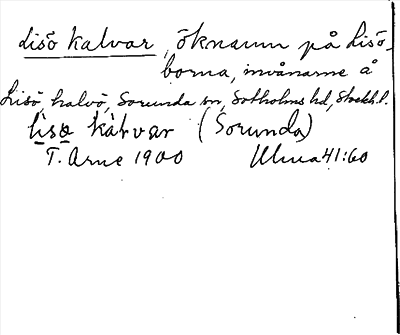 Lisö kalvar, öknamn på Lisö-
borna, invånarne å
Lisö, halvö, Sorunda sn, Sotholms hd, Stockh. l.
lisö kàlvar (Sorunda)
T. Arne 1900 Ulma 41:60